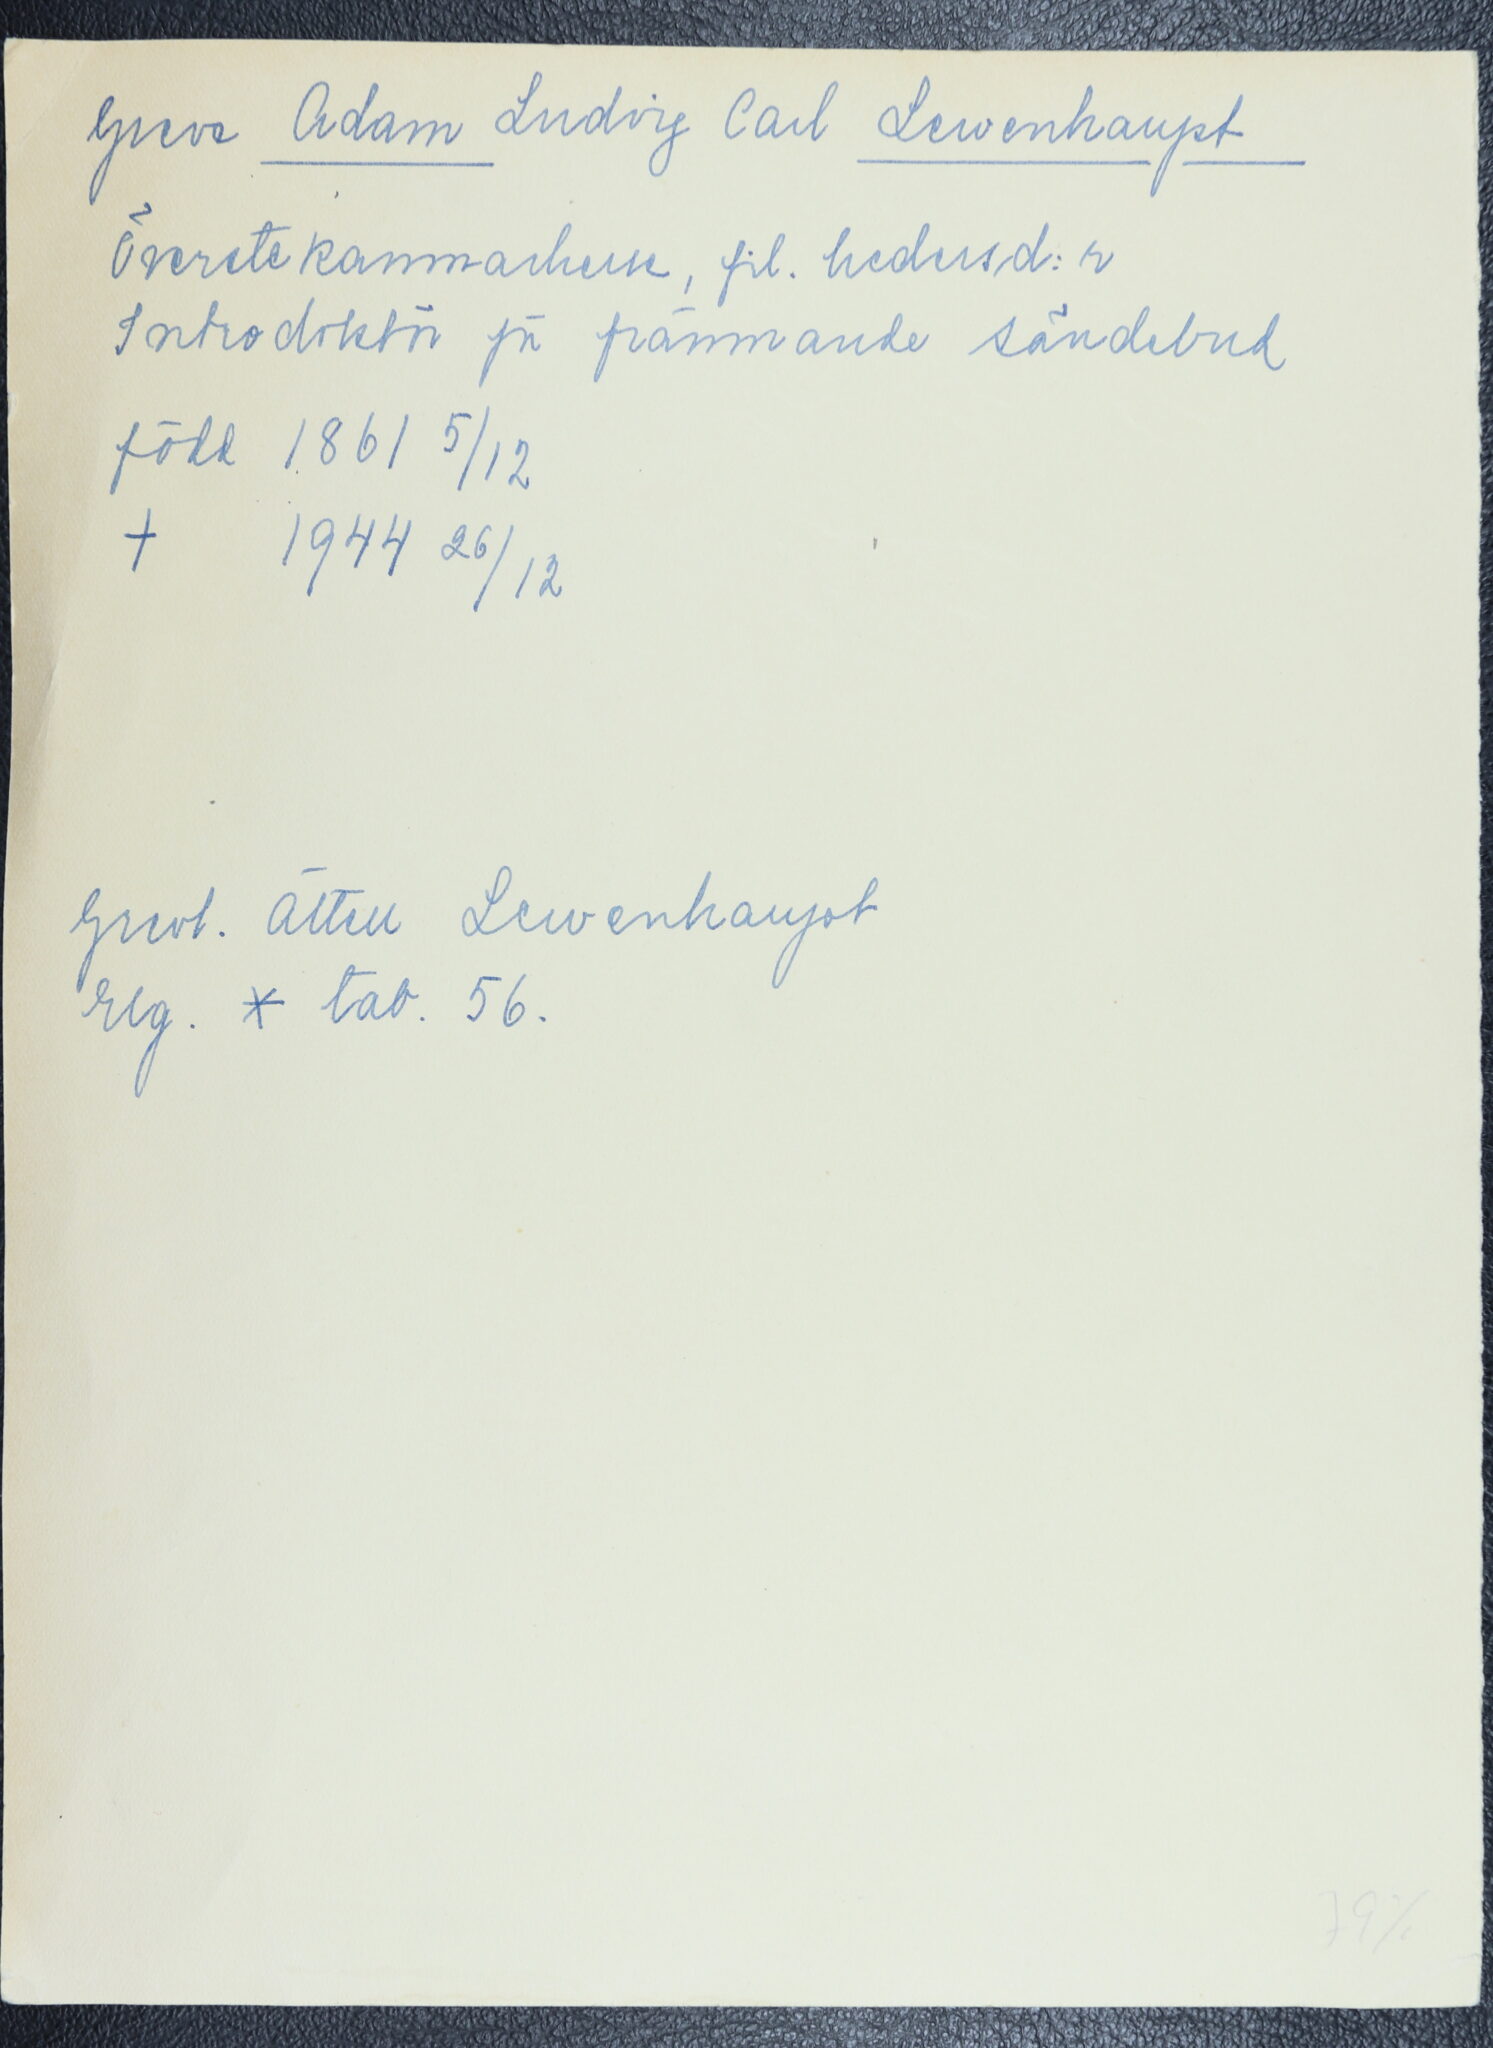 Greve Adam Ludvig Carl Lewenhaupt
Överstekammarherre, fil. hedersd:r
Introdoktör för främmande sändebud
född 1861 5/12
† 1944 26/12
Grevl. ätten Lewenhaupt
Elg. * tab. 56.